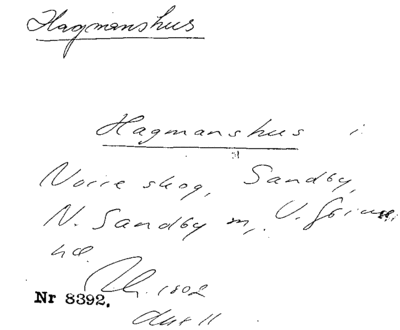 Hagmanshus
Hagmanshus i
Norre skog, Sandby,
N. Sandby sn,
hd.
1802
Nr 8392.